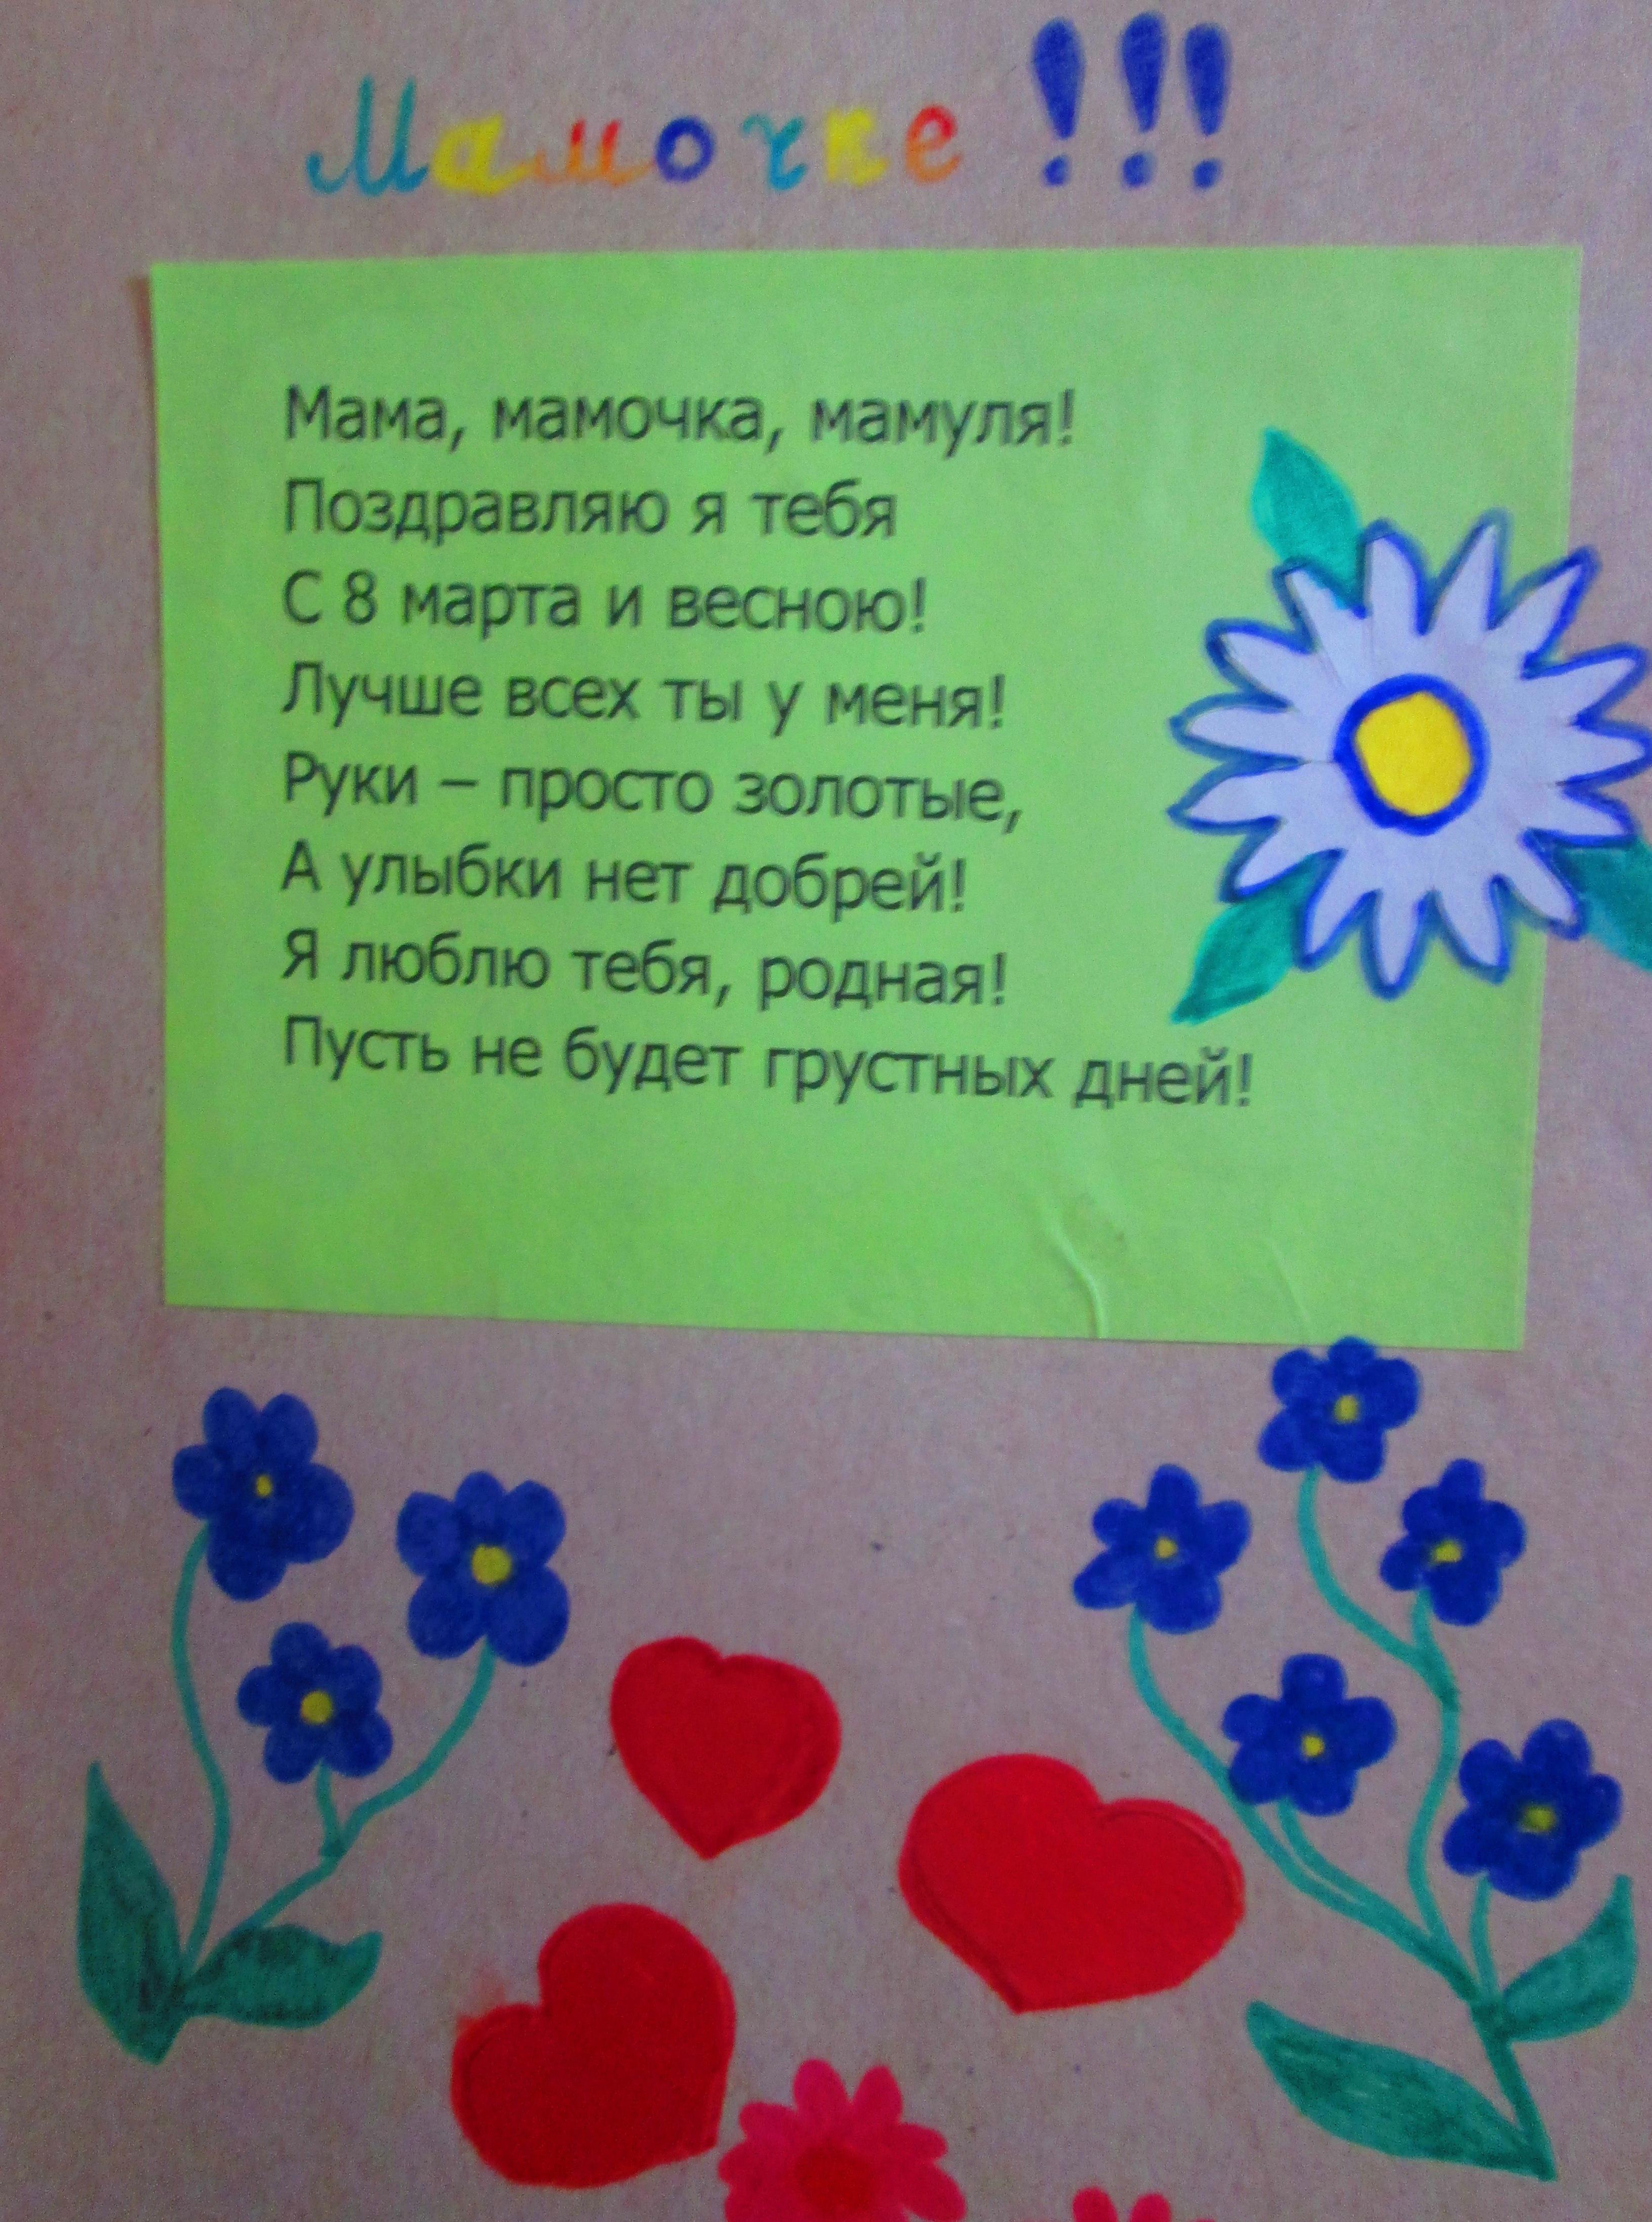 Мамочке!!!
Мама, мамочка, мамуля!
Поздравляю я тебя
С 8 марта и весною!
Лучше всех ты у меня!
Руки – просто золотые,
А улыбки нет добрей!
Я люблю тебя, родная!
Пусть не будет грустных дней!